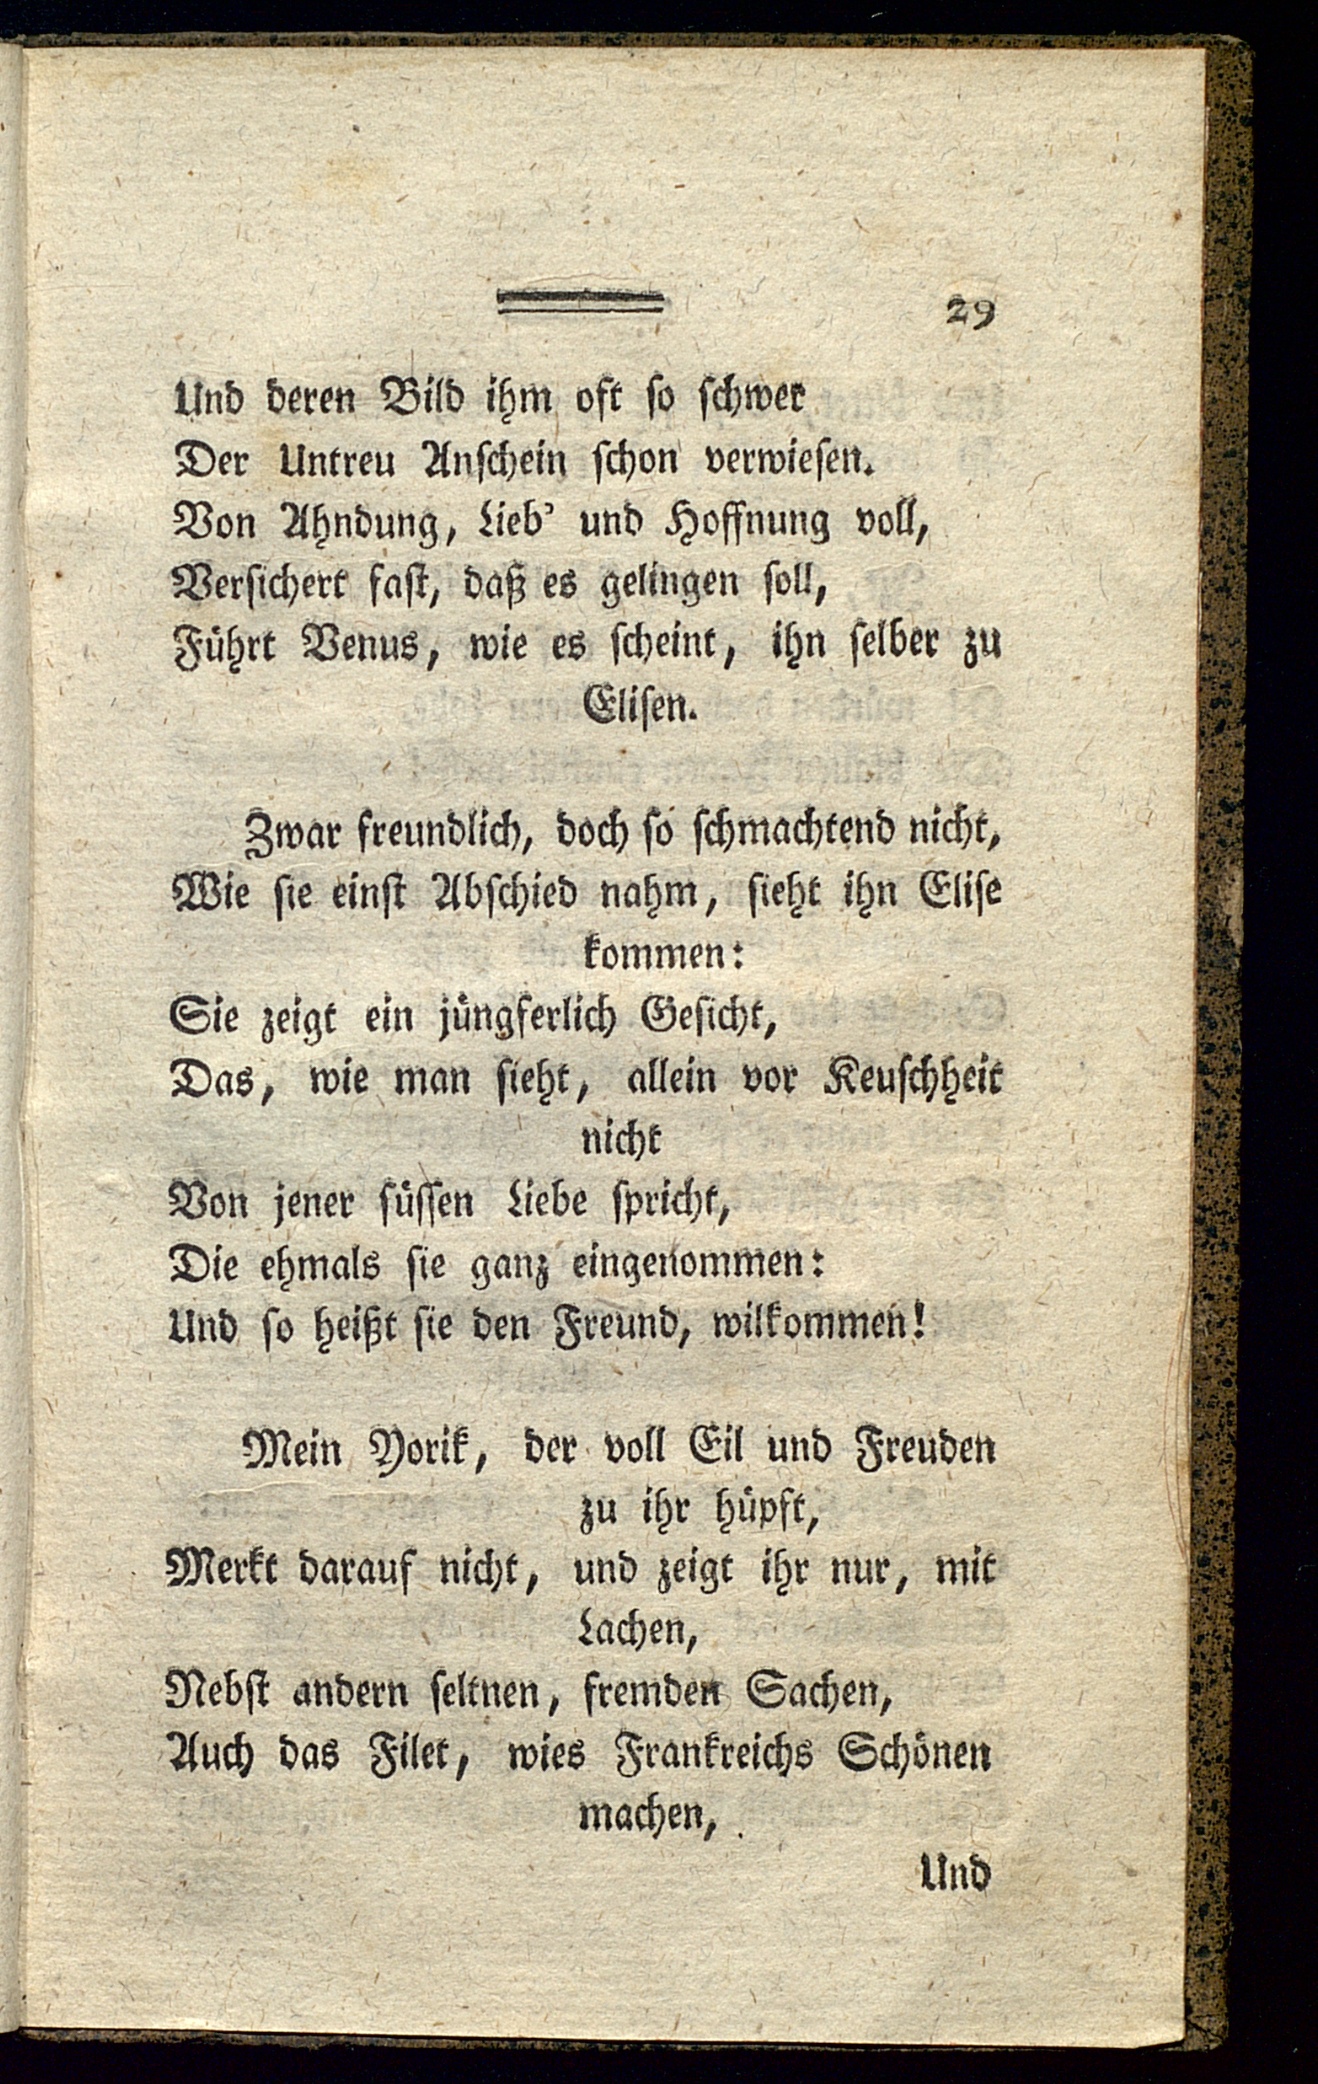 29
Und deren Bild ihm oft so schwer
Der Untreu Anschein schon verwiesen.
Von Ahndung, Lieb' und Hoffnung voll,
Versichert fast, daß es gelingen soll,
Führt Venus, wie es scheint, ihn selber zu
Elisen.
Zwar freundlich, doch so schmachtend nicht,
Wie sie einst Abschied nahm, sieht ihn Elise
kommen:
Sie zeigt ein jüngferlich Gesicht,
Das, wie man sieht, allein vor Keuschheit
nicht
Von jener süssen Liebe spricht,
Die ehmals sie ganz eingenommen:
Und so heißt sie den Freund, wilkommen!
Mein Yorik, der voll Eil und Freuden
zu ihr hüpft,
Merkt darauf nicht, und zeigt ihr nur, mit
Lachen,
Nebst andern seltnen, fremden Sachen,
Auch das Filet, wies Frankreichs Schönen
machen,
Und